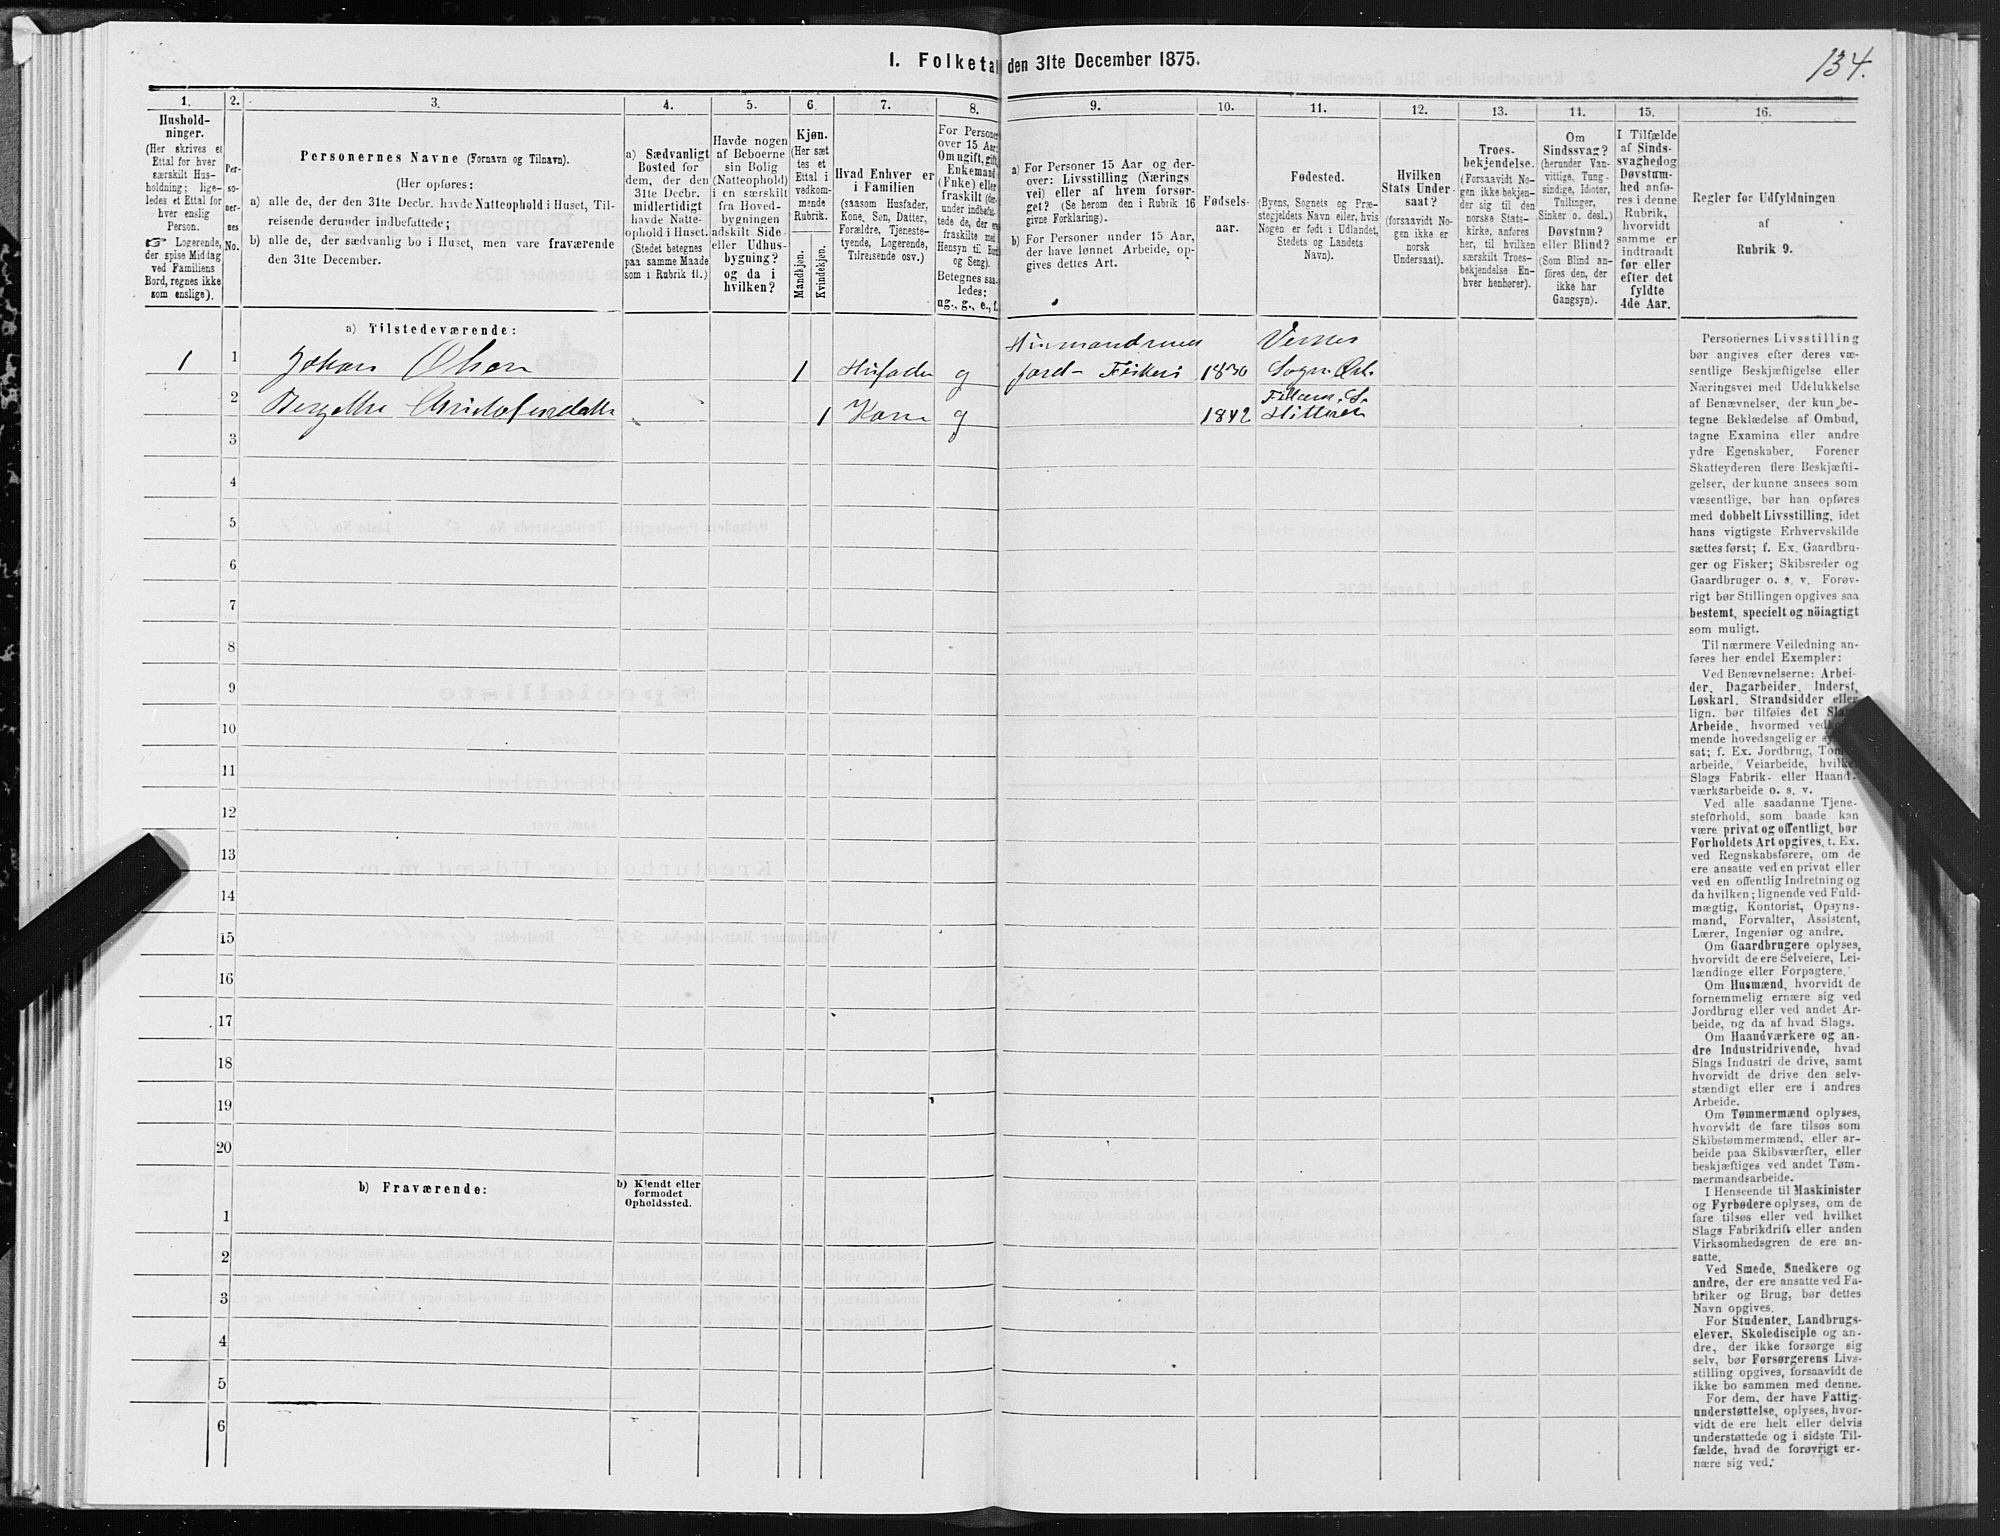 134.
1. Folketal den 31te December 1875.
1.
2.
3.
4.
5.
6.
7.
8.
9.
10.
11.
12.
13.
14.
15.
16.
Hushold-
ninger.
(Her skrives et
Ettal for hver
særskilt Hus-
holdning; lige-
ledes et Ettal for
hver enslig
Person.
☞ Logerende,
der spise Middag
ved Familiens
Bord, regnes ikke
som enslige).
Per-
so-
ner-
nes
No.
Personernes Navne (Fornavn og Tilnavn).
(Her opføres:
a) alle de, der den 31te Decbr. havde Natteophold i Huset, Til-
reisende derunder indbefattede;
b) alle de, der sædvanlig bo i Huset, men vare fraværende
den 31te December.
a) Sædvanligt
Bosted for
dem, der den
31te Decbr.
midlertidigt
havde Natte-
ophold i Huset.
(Stedet betegnes
paa samme Maade
som i Rubrik 11.)
Havde nogen
af Beboerne
sin Bolig
(Natteophold)
i en særskilt
fra Hoved-
bygningen
adskilt Side-
eller Udhus-
bygning?
og da i
hvilken?
Kjøn.
(Her sæt
tes et
Ettal i
vedkom-
mende
Rubrik.
Mandkjøn.
Kvindekjøn.
Hvad Enhver er
i Familien
(saasom Husfader,
Kone, Søn, Datter,
Forældre, Tjeneste-
tyende, Logerende,
Tilreisende osv.)
For Personer
over 15 Aar:
Om ugift, gift,
Enkemand
(Enke) eller
fraskilt (der-
under indbefat-
tede de, der ere
fraskilte med
Hensyn til Bord
og Seng).
Betegnes saa-
ledes:
ug., g., e., f.
a) For Personer 15 Aar og der-
over: Livsstilling (Nærings
vei) eller af hvem forsør-
get? (Se herom den i Rubrik 16
givne Forklaring).
b) For Personer under 15 Aar,
der have lønnet Arbeide, op-
gives dettes Art.
Fødsels-
aar.
Fødested.
(Byens, Sognets og Præ-
stegjeldets Navn eller, hvis
Nogen er født i Udlandet,
Stedets og Landets
Navn).
Hvilken
Stats Under-
saat?
(forsaavidt No-
gen ikke er
norsk
Undersaat).
Troes-
bekjendelse.
(Forsaavidt No-
gen ikke bekjen-
der sig til den
norske Stats-
kirke, anføres
her, til hvilken
særskilt Troes-
bekjendelse En-
hver henhører).
Om
Sindssvag?
(herunder Van-
vittige, Tung-
sindige, Idioter,
Tullinger,
Sinker o. desl.)
Døvstum?
eller Blind?
(Som Blind an-
føres den, der
ikke har
Gangsyn).
I Tilfælde
af Sinds-
svaghed og
Døvstum-
hed anfø-
res i denne
Rubrik,
hvorvidt
samme er
indtraadt
før eller
efter det
fyldte
4de Aar.
Regler før Udfyldningen
af
Rubrik 9.
a) Tilstedeværende:
1 1 Johan Olsen 1 Husfader g 1830
Fiskeri
2 1 Kone g 1842
3
4
5
6
7
8
9
10
11
12
13
14
15
16
17
18
19
20
b) Fraværende:
b) Kjendt eller
formodet
Opholdssted.
1
2
3
4
5
6
Personernes Livsstilling
bør angives efter deres væ-
sentlige Beskjæftigelse eller
Næringsvei med Udelukkelse
af Benævnelser, der kun be-
tegne Beklædelse af Ombud,
tagne Examina eller andre
ydre Egenskaber. Forener
Skatteyderen flere Beskjæfti-
gelser, der kunne ansees som
væsentlige, bør han opføres
med dobbelt Livsstilling, idet
hans vigtigste Erhvervskilde
sættes først; f. Ex. Gaardbru-
ger og Fisker; Skibsreder og
Gaardbruger o. s. v. Forøv-
rigt bør Stillingen opgives saa
bestemt, specielt og nöiagtigt
som muligt.
Til nærmere Veiledning an-
føres her endel Exempler:
Ved Benævnelserne: Arbei-
der, Dagarbeider, Inderst,
Løskarl, Strandsidder eller
lign. bør tilføies det Slags
Arbeide, hvormed vedkom-
mende hovedsagelig er syssel-
sat; f. Ex. Jordbrug, Tømmer-
arbeide, Veiarbeide, hvilket
Slags Fabrik- eller Haand-
værksarbeide o. s. v.
Ved alle saadanne Tjene-
steforhold, som baade kan
være privat og offentligt, bør
Forholdets Art opgives, t. Ex.
ved Regnskabsførere, om de
ere ansatte ved en privat eller
ved en offentlig Indretning og
da hvilken; lignende ved Fuld-
mægtig, Kontorist, Opsyns-
mand, Forvalter, Assistent,
Lærer, Ingeniør og andre.
Om Gaardbrugere oplyses,
hvorvidt de ere Selveiere, Lei-
lændinge eller Forpagtere.
Om Husmænd, hvorvidt de
fornemmelig ernære sig ved
Jordbrug eller ved andet Ar-
beide, og da af hvad Slags.
Om Haandværkere og an-
dre Industridrivende, hvad
Slags Industri de drive, samt
hvorvidt de drive den selv-
stændigt eller ere i andres
Arbeide.
Om Tømmermænd oplyses,
hvorvidt de fare tilsøs som
Skibstømmermænd, eller ar-
beide paa Skibsværfter, eller
beskjæftiges ved andet Tøm-
mermandsarbeide.
I Henseende til Maskinister
og Fyrbødere oplyses, om de
fare tilsøs eller ved hvilket
Slags Fabrikdrift eller anden
Virksomhedsgren de ere an-
satte.
Ved Smede, Snedkere og
andre, der ere ansatte ved Fa-
briker og Brug, bør dettes
Navn opgives.
For Studenter, Landbrugs-
elever, Skoledisciple og an-
dre, der ikke forsørge sig
selv, bør Forsørgerens Livs-
stilling opgives, forsaavidt de
ikke bo sammen med denne.
For dem, der have Fattig-
understøttelse, oplyses, hvor-
vidt de ere helt eller delvis
understøttede og i sidste Til-
fælde, hvad de forøvrigt er-
nære sig ved.